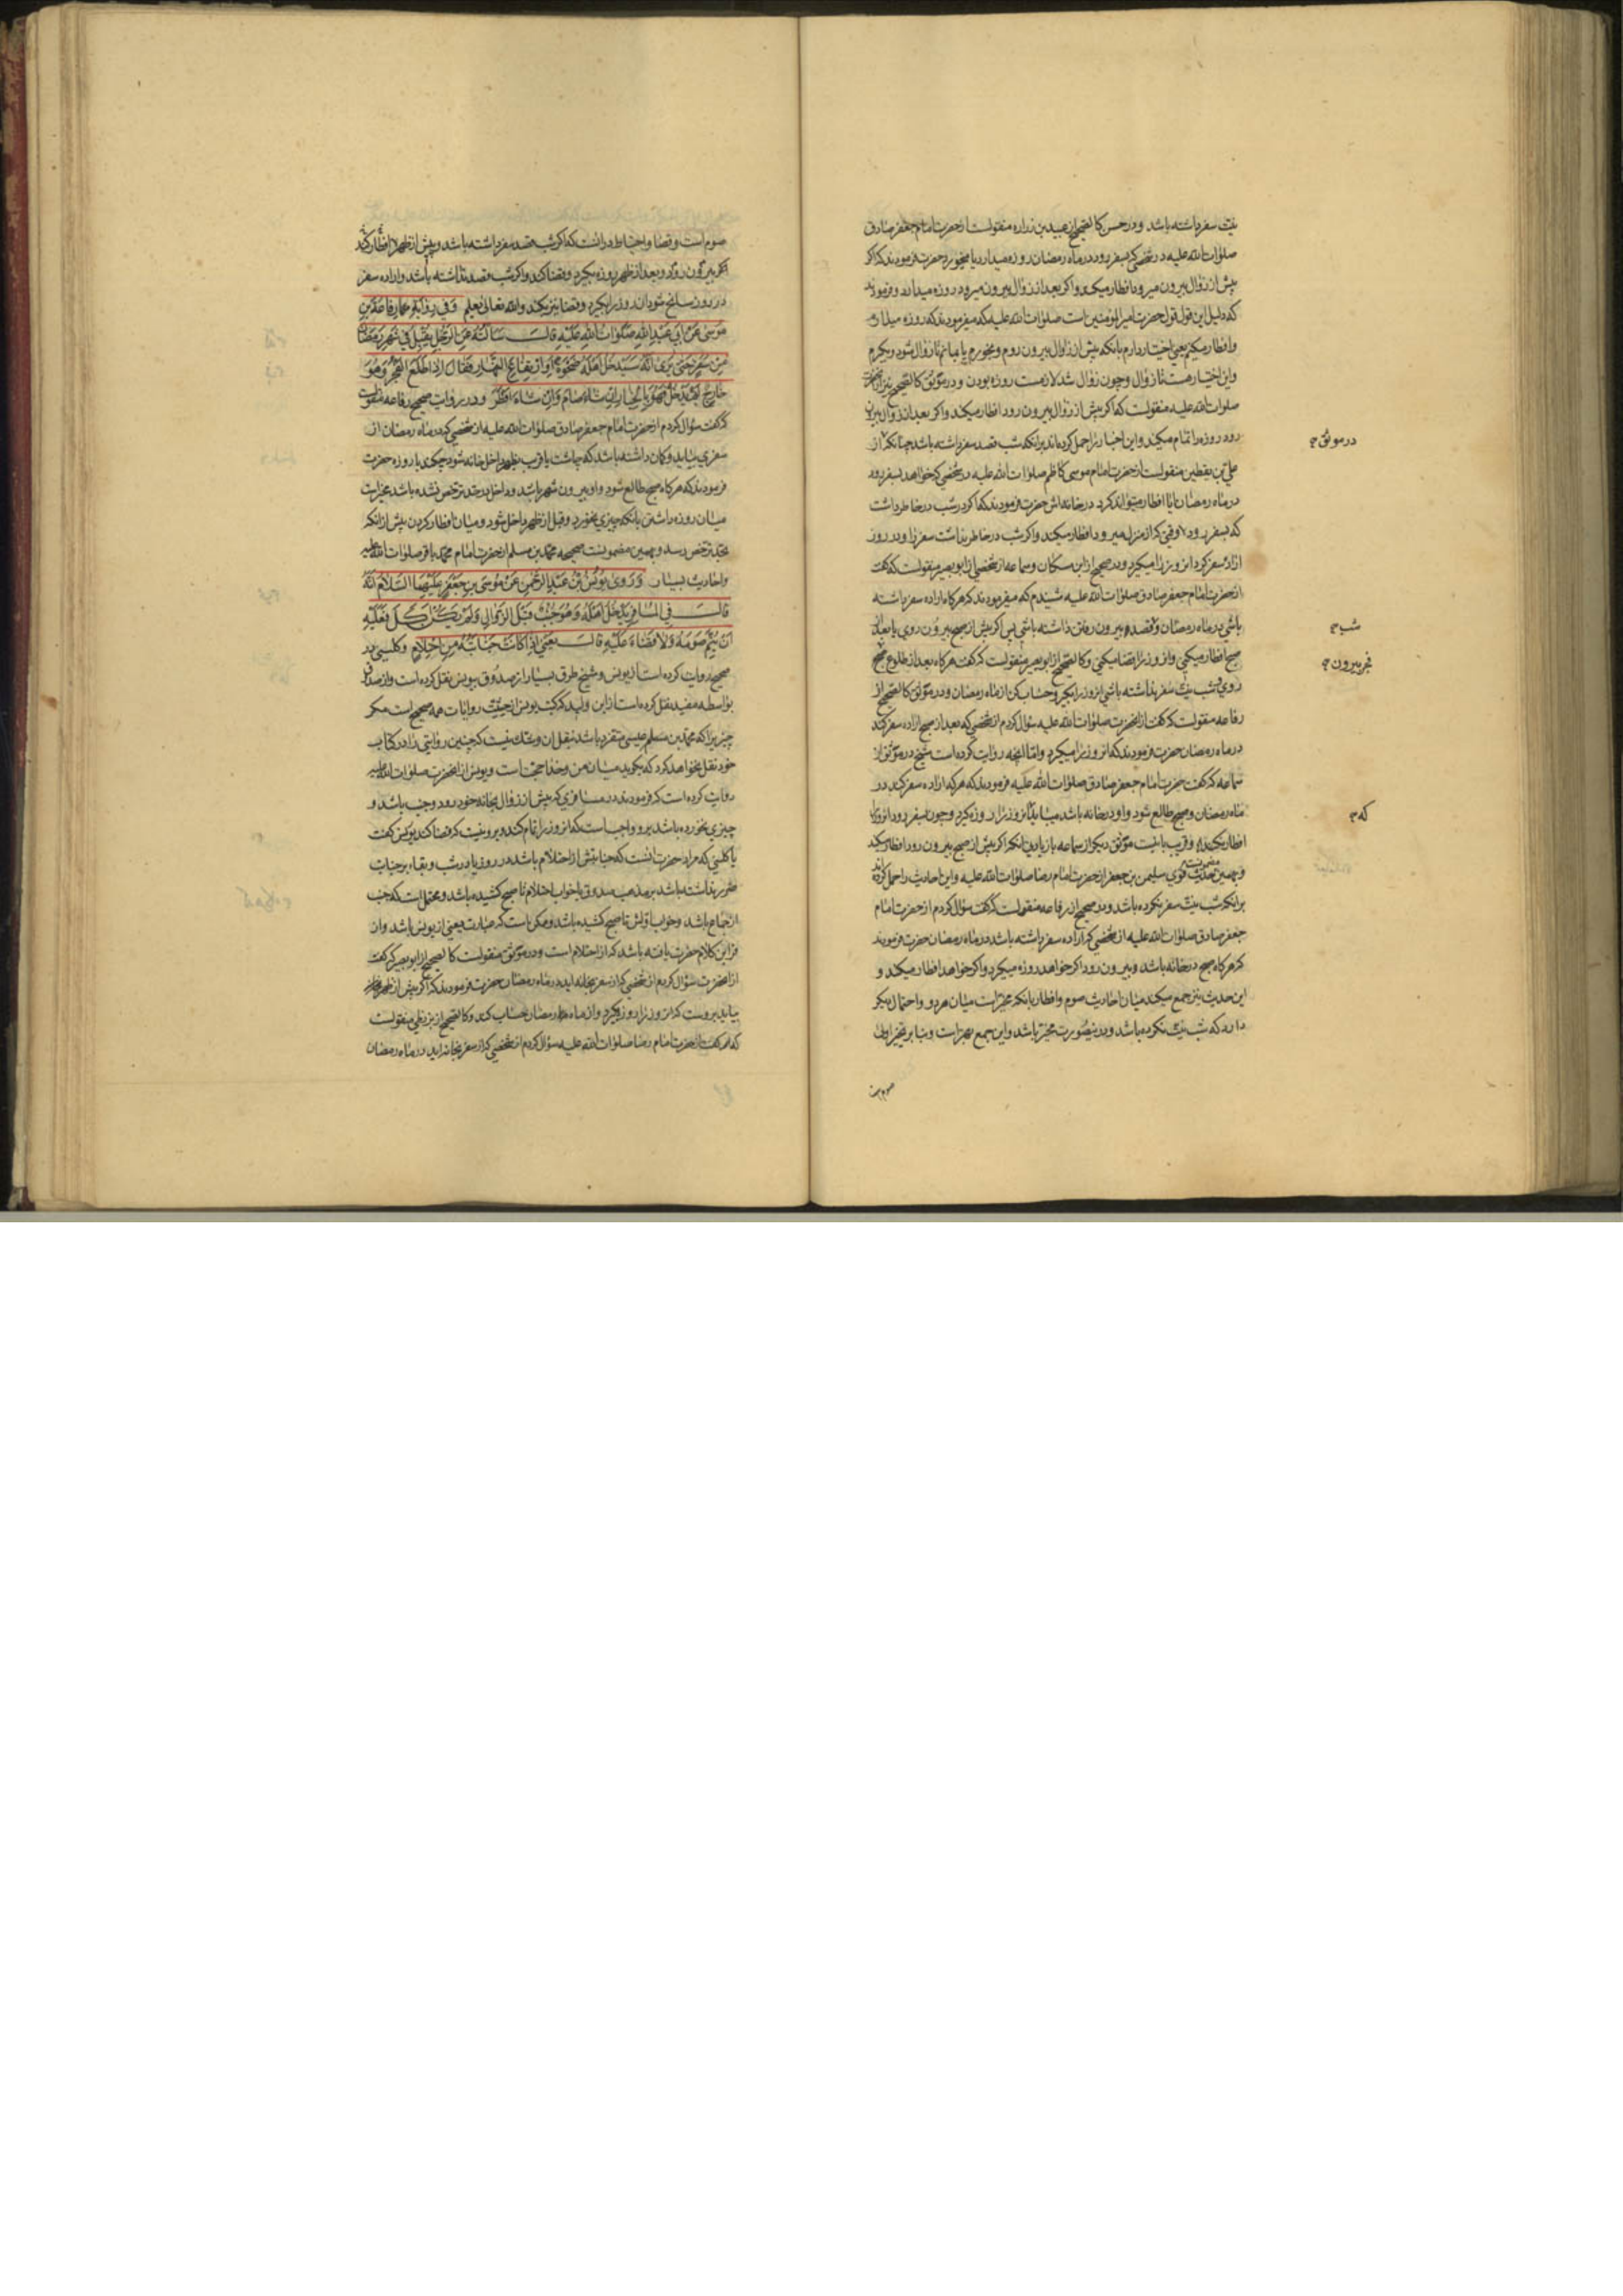 نیت سفر داشته باشد و در حسن کالصحیح از عبید بن زراره منقولست از حضرت امام جعفر صادق
صلوات الله علیه در شخصی که بسفر رود در ماه رمضان روزه میدارد یا میخورد حضرت فرمودند که اکر
پیش از زوال بیرون میرود افطار میکند و اکر بعد از زوال بیرون میرود روزه میدارد و فرمودند
که دلیل این قول قول حضرت امیر المؤمنین است صلوات الله علیه که میفرمودند که روزه میدارم
وافطار میکنم یعنی اختیار دارم بانکه پیش از زوال بیرون روم و بخورم یا بمانم تا زوال شود و بکیرم
واین اختیار هست تا زوال وچون زوال شد لازمست روزه بودن و در موثق کالصحیح نیز از آنحضرت
صلوات الله علیه منقولست که اکر پیش از زوال بیرون رود افطار میکند واکر بعد از زوال بیرون
رود روزه را تمام میکند و این اخبار را حمل کرده‌اند برانکه شب قصد سفر داشته باشد چنانکه از
در موثق
علی بن یقطین منقولست از حضرت امام موسی کاظم صلوات الله علیه در شخصی که خواهد بسفر رود
در ماه رمضان ایا افطار میتواند کرد در خانه‌اش حضرت فرمودند که اکر در شب در خاطر داشت
که بسفر رود وقتی که از منزل میرود افطار میکند واکر شب در خاطر نداشت سفر را و در روز
اراده سفر کرد آنروز را میکیرد و در صحیح از ابن مسکان و سماعه از شخصی از ابو بصیر منقولست که کفت
از حضرت امام جعفر صادق صلوات الله علیه شنیدم که میفرمودند که هرکاه اراده سفر داشته
باشی در ماه رمضان و قصد بیرون رفتن داشته باشی پس اکر پیش از صبح بیرون روی یا بعد از
شب
صبح افطار میکنی وانروز را قضا میکنی و کالصحیح از ابو بصیر منقولست که کفت هرکاه بعد از طلوع صبح
فجر بیرون
روی و شب نیت سفر نداشته باشی انروز را بکیر و حساب کن از ماه رمضان و در موثق کالصحیح از
رفاعه منقولست که کفت از آنحضرت صلوات الله علیه سؤال کردم از شخصی که بعد از صبح اراده سفر کند
در ماه رمضان حضرت فرمودند که انروز را میکیرد واما انچه روایت کرده است شیخ در موثق از
سماعه که کفت حضرت امام جعفر صادق صلوات الله علیه فرمودند که هرکه اراده سفر کند در
ماه رمضان و صبح طالع شود و او در خانه باشد میباید که آنروز را روزه کیرد وچون بسفر رود انروز را
که
افطار نکند و قریب باینست موثق دیکر از سماعه با زیادتی انکه اکر پیش از صبح بیرون رود افطار میکند
وبهمین مضمونست حدیث قوی سلیمن بن جعفر از حضرت امام رضا صلوات الله علیه و این احادیث را حمل کرده‌اند
برانکه شب نیت سفر نکرده باشد و در صحیح از رفاعه منقولست که کفت سؤال کردم از حضرت امام
جعفر صادق صلوات الله علیه از شخصی که اراده سفر داشته باشد در ماه رمضان حضرت فرمودند
که هرکاه صبح در خانه باشد و بیرون رود اکر خواهد روزه میکیرد واکر خواهد افطار میکند و
این حدیث نیز جمع میکند میان احادیث صوم وافطار بانکه مخیر است میان هر دو و احتمال دیکر
دارد که شب نیت نکرده باشد و درینصورت مخیر باشد و این جمع بهتر است وبنا بر تخییر اولی
صوم است
صوم است و قضا و احتیاط در انست که اکر شب قصد سفر داشته باشد و پیش از ظهر افطار کند
اکر بیرون رود و بعد از ظهر روزه بکیرد و قضا کند و اکر شب قصد نداشته باشد و اراده سفر
در روز سانح شود انروز را بکیرد و قضا نیز بکند والله تعالی یعلم وَفی رِوٰایَةِ رِفاعَةَ بنِ
موسٰی عَن اَبی عَبدِ اللهِ صَلَوٰاتُ اللهِ عَلَیهِ قالَ سَاَلتُهُ عَنِ الرَّجُلِ یُقبِلُ فی شَهرِ رَمَضٰانَ
مِن سَفَرٍ حَتّٰی یَریٰ اَنَّهُ سَیَدخُلُ اَهلَهُ ضَحوَةً اَوِ ارتِفاعَ النَّهٰارِ فَقالَ اِذٰا طَلَعَ الفَجرُ وَهُوَ
خارِجٌ لَم یَدخُل فَهُوَ بِالخِیارِ اِن شاءَ صامَ وَاِن شاءَ اَفطَرَ و در روایت صحیح رفاعه منقولست
که کفت سؤال کردم از حضرت امام جعفر صادق صلوات الله علیه از شخصی که در ماه رمضان از
سفری بیاید وکمان داشته باشد که چاشت یا قریب بظهر داخل خانه شود چکند با روزه حضرت
فرمودند که هرکاه صبح طالع شود و او بیرون شهر باشد و داخل در حد ترخص نشده باشد مخیر است
میان روزه داشتن بانکه چیزی نخورد وقبل از ظهر داخل شود و میان افطار کردن پیش از انکه
بحد ترخص رسد و بهمین مضمونست صحیحه محمد بن مسلم از حضرت امام محمد باقر صلوات الله علیه
واحادیث بسیار وَرَوٰی یُونُسُ بنُ عَبدِ الرَّحمٰنِ عَن مُوسَی بنِ جَعفَرٍ عَلَیهِمَا السَّلامُ اَنَّهُ
قالَ فِی المُسٰافِرِ یَدخُلُ اَهلَهُ وَهُوَ جُنُبٌ قَبلَ الزَّوٰالِ وَلَم یَکُن اَکَلَ فَعَلَیهِ
اَن یُتِمَّ صَومَهُ وَلاٰ قَضٰاءَ عَلَیهِ قالَ یَعنی اِذٰا کانَت جَنٰابَتُهُ مِنِ احتِلاٰمٍ و کلینی در
صحیح روایت کرده است از یونس و شیخ طرق بسیار از صدوق بیونس نقل کرده است واز صدوق
بواسطه مفید نقل کرده است از ابن ولید که کتب یونس از حیثیت روایات همه صحیح است مکر
چیزیرا که محمد بن عیسی متفرد باشد بنقل ان و شک نیست که چنین روایتی را در کتاب
خود نقل نخواهد کرد که بکوید میان من وخدا حجت است و یونس از آنحضرت صلوات الله علیه
روایت کرده است که فرمودند در مسافری که پیش از زوال بخانه خود رود و جنب باشد و
چیزی نخورده باشد برو واجب است که انروز را تمام کند و برو نیست که قضا کند یونس کفت
یا کلینی که مراد حضرت انست که جنابتش از احتلام باشد در روز یا در شب و بقاء بر جنابت
ضرر نداشته باشد بر مذهب صدوق یا خواب احتلام تا صبح کشیده باشد و محتملست که جنب
از جماع باشد وخواب اولش تا صبح کشیده باشد و ممکن است که عبارت یعنی از یونس باشد وان
از این کلام حضرت یافته باشد که از احتلام است و در موثق منقولست کالصحیح از ابو بصیر که کفت
از آنحضرت سؤال کردم از شخصی که از سفر بخانه اید در ماه رمضان حضرت فرمودند که اکر پیش از ظهر
بیاید بروست که انروز را روزه بکیرد و از ماه رمضان حساب کند و کالصحیح از بزنطی منقولست
که کفت از حضرت امام رضا صلوات الله علیه سؤال کردم از شخصی که از سفر بخانه اید در ماه رمضان